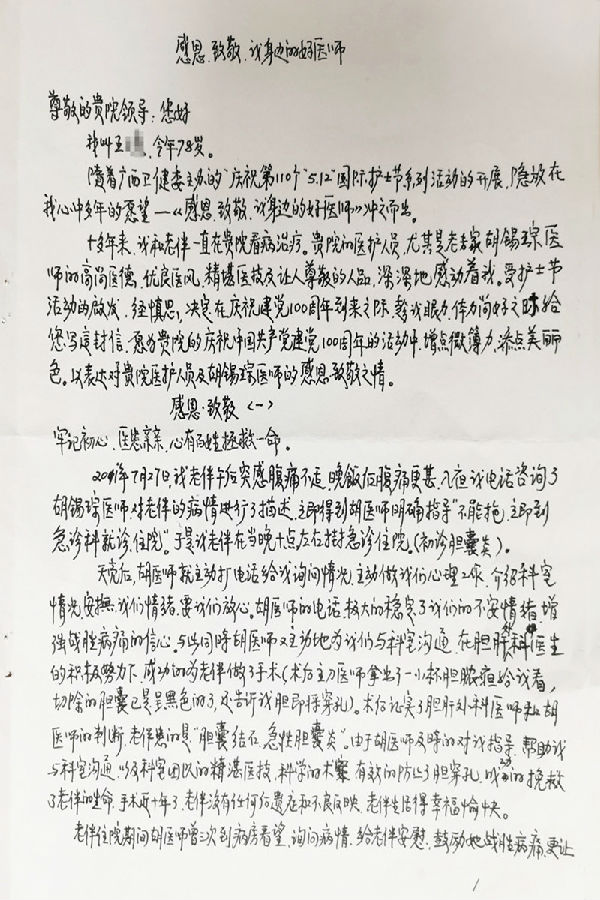 感恩.致敬.我身边的好医师
尊敬的贵院领导:您好
我叫王 、今年78岁。
随着广西卫健委主办的"庆祝第110个"5.12"国际护士节系列活动的开展、隐放在
我心中多年的愿望一《感恩.致敬、我身边的好医师》冲之而生。
十多年来、我和老伴一直在贵院看病治疗。贵院的医护人员、尤其是老专家胡锡琮医
师的高尚医德、优良医风、精湛医技及让人尊敬的人品、深深地感动着我。受护士节
活动的启发、经慎思、决定在庆祝建党100周年到来之际、趁我眼力、体力尚好之时给
您写这封信、愿为贵院的庆祝中国共产党建党100周年的活动中、增点微薄力、添点美丽
色。以表达对贵院医护人员及胡锡琮医师的感恩、致敬之情。
感恩·致敬(一)
牢记初心、医患亲亲、心有百姓拯救一命。
年7月27日我老伴午后突感腹痛不适、晚饭后腹痛更甚、入夜我电话咨询了
胡锡琮医师对老伴的病情进行了描述、立即得到胡医师明确指导"不能拖、立即到
急诊科就诊、住院"。于是我老伴在当晚十点左右挂急诊住院。(初诊胆囊炎)。
天亮后、胡医师就主动打电话给我询问情况、主动做我们心理工作、介绍科室
情况、安抚我们情绪、要我们放心。胡医师的电话、极大的稳定了我们的不安情绪、增
强战胜病痛的信心。与此同时胡医师又主动地为我们与科室沟通、在胆肝外科医生
的积极努力下、成功的为老伴做了手术(术后主刀医师拿出了一小杯胆脓疽给我看,
切除的胆囊已是呈黑色的了、还告诉我胆即将穿孔)。术后证实了胆肝外科医师和胡
医师的判断、老伴患的是"胆囊结石、急性胆囊炎"。由于胡医师及时的对我指导、帮助我
与科室沟通、以及科室团队的精湛医技、科学的术案、有效的防止了胆穿孔、成功的挽救
了老伴的生命、手术近十年了、老伴没有任何后遗症和不良反映、老伴生活得幸福愉快。
老伴住院期间胡医师曾三次到病房看望、询问病情、给老伴安慰、鼓励她战胜病痛、更让
1